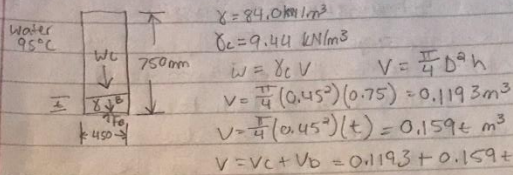 Water
95°C
Wc
750mm
I
γ B
Fb
450
γ = 84.0 kN/m³
γc = 9.44 kN/m³
w = γc V V = π/4 D² h
V = π/4 (0.45²)(0.75) = 0.1193 m³
V = π/4 (0.45²)(t) = 0.159t m³
V = Vc + Vb = 0.1193 + 0.159t